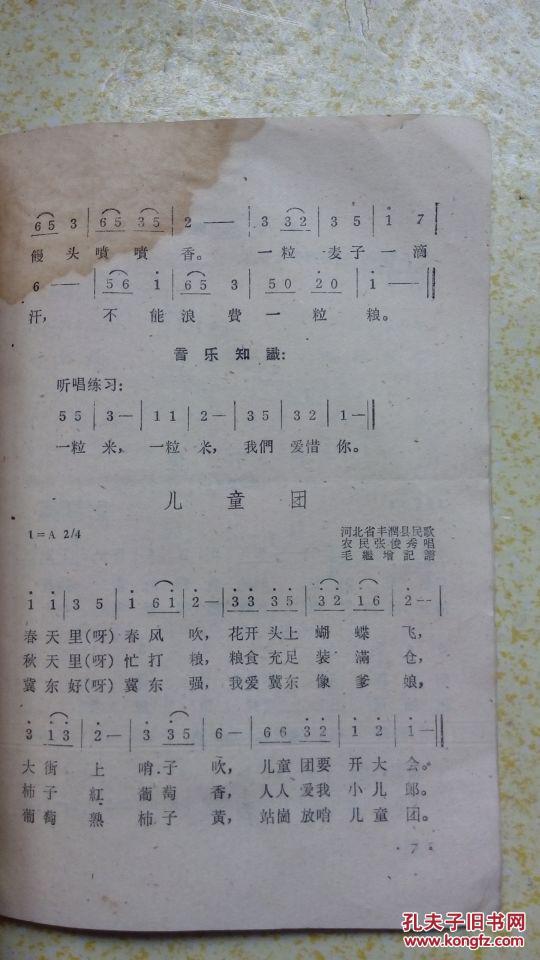 6 5 3 | 6 5 3 5 | 2 — — | 3 3 2 | 3 5 | 1 7 |
馒 头 噴 噴 香。 一 粒 麦 子 一 滴
6 — — | 5 6 1 | 6 5 3 | 5 0 2 0 | 1 — ‖
汗， 不 能 浪 費 一 粒 粮。
音 乐 知 識：
听唱练习：
5 5 | 3 — | 1 1 | 2 — | 3 5 | 3 2 | 1 — ‖
一粒 米， 一粒 米， 我們 爱惜 你。
儿 童 团
1 = A 2/4
河北省丰潤县民歌
农民张俊秀唱
毛繼增記譜
1 1 | 3 5 | 1 6 1 | 2 — | 3 3 3 5 | 3 2 1 6 | 2 — |
春 天 里(呀) 春 风 吹， 花开 头上 蝴 蝶 飞，
秋 天 里(呀) 忙 打 粮， 粮食 充足 装 滿 仓，
冀 东 好(呀) 冀 东 强， 我爱 冀东 像 爹 娘，
3 1 3 | 2 — | 3 3 5 | 6 — | 6 6 3 2 | 1 2 | 1 — ‖
大 街 上 哨 子 吹， 儿童 团要 开 大 会。
柿 子 紅 葡 萄 香， 人人 爱我 小 儿 郎。
葡 萄 熟 柿 子 黃， 站崗 放哨 儿 童 团。
· 7 ·
孔夫子旧书网
www.kongfz.com